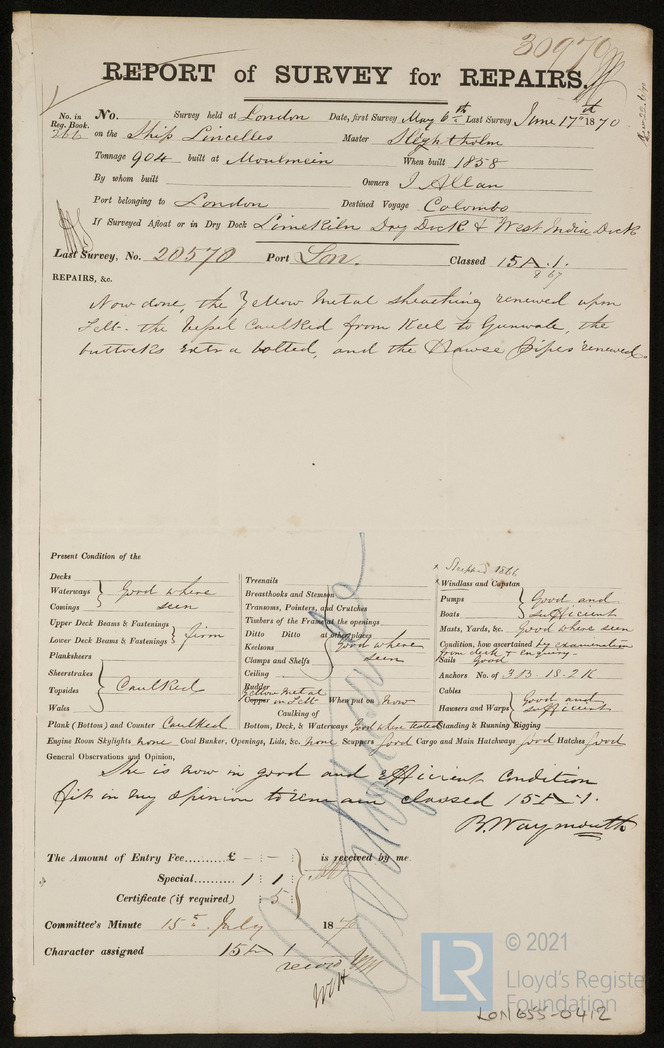 30970
REPORT of SURVEY for REPAIRS.
No. in Reg. Book. No. Survey held at London Date, first Survey May 6th Last Survey June 17th 1870
266 on the Ship Lincelles Master Sleightholm
Tonnage 904 built at Moulmein When built 1858
By whom built Owners J Allan
Port belonging to London Destined Voyage Colombo
If Surveyed Afloat or in Dry Dock Limekiln Dry Dock & West India Dock
Last Survey, No. 20570 Port Lon. Classed 15 A.1.
8 67
REPAIRS, &c.
Now done, the Yellow Metal sheathing renewed upon
Felt. the Vessel Caulked from Keel to Gunwale, the
buttocks extra bolted, and the Hawse Pipes renewed.
Present Condition of the
Decks
Waterways
Comings
Good where seen
Upper Deck Beams & Fastenings
Lower Deck Beams & Fastenings
firm
Planksheers
Sheerstrakes
Topsides
Wales
Caulked
Plank (Bottom) and Counter Caulked
Treenails
Breasthooks and Stemson
Transoms, Pointers, and Crutches
Timbers of the Frame at the openings
Ditto Ditto at other places
Keelsons
Clamps and Shelfs
Good where seen
Ceiling
Rudder
Yellow Metal
Copper on Felt When put on Now
Caulking of
Bottom, Deck, & Waterways Good where tested
x 1866
x Windlass and Capstan
Pumps
Boats
Good and sufficient
Masts, Yards, &c. Good where seen
Condition, how ascertained by examination
from deck & enquiry
Sails Good
Anchors No. of 3 B. 1 S. 2 K
Cables
Hausers and Warps
Good and sufficient
Standing & Running Rigging
Engine Room Skylights None Coal Bunker, Openings, Lids, &c. None Scuppers Good Cargo and Main Hatchways good Hatches Good
General Observations and Opinion,
She is now in good and efficient Condition
fit in my opinion to remain classed 15 A 1.
B. Waymouth
The Amount of Entry Fee.......... £ - : - : is received by me
Special.......... 1 : 1 :
Certificate (if required) : 5 :
Committee's Minute 15th July 1870
Character assigned 15 A 1
© 2021
LR
Lloyd's Register
Foundation
LON 655-0412